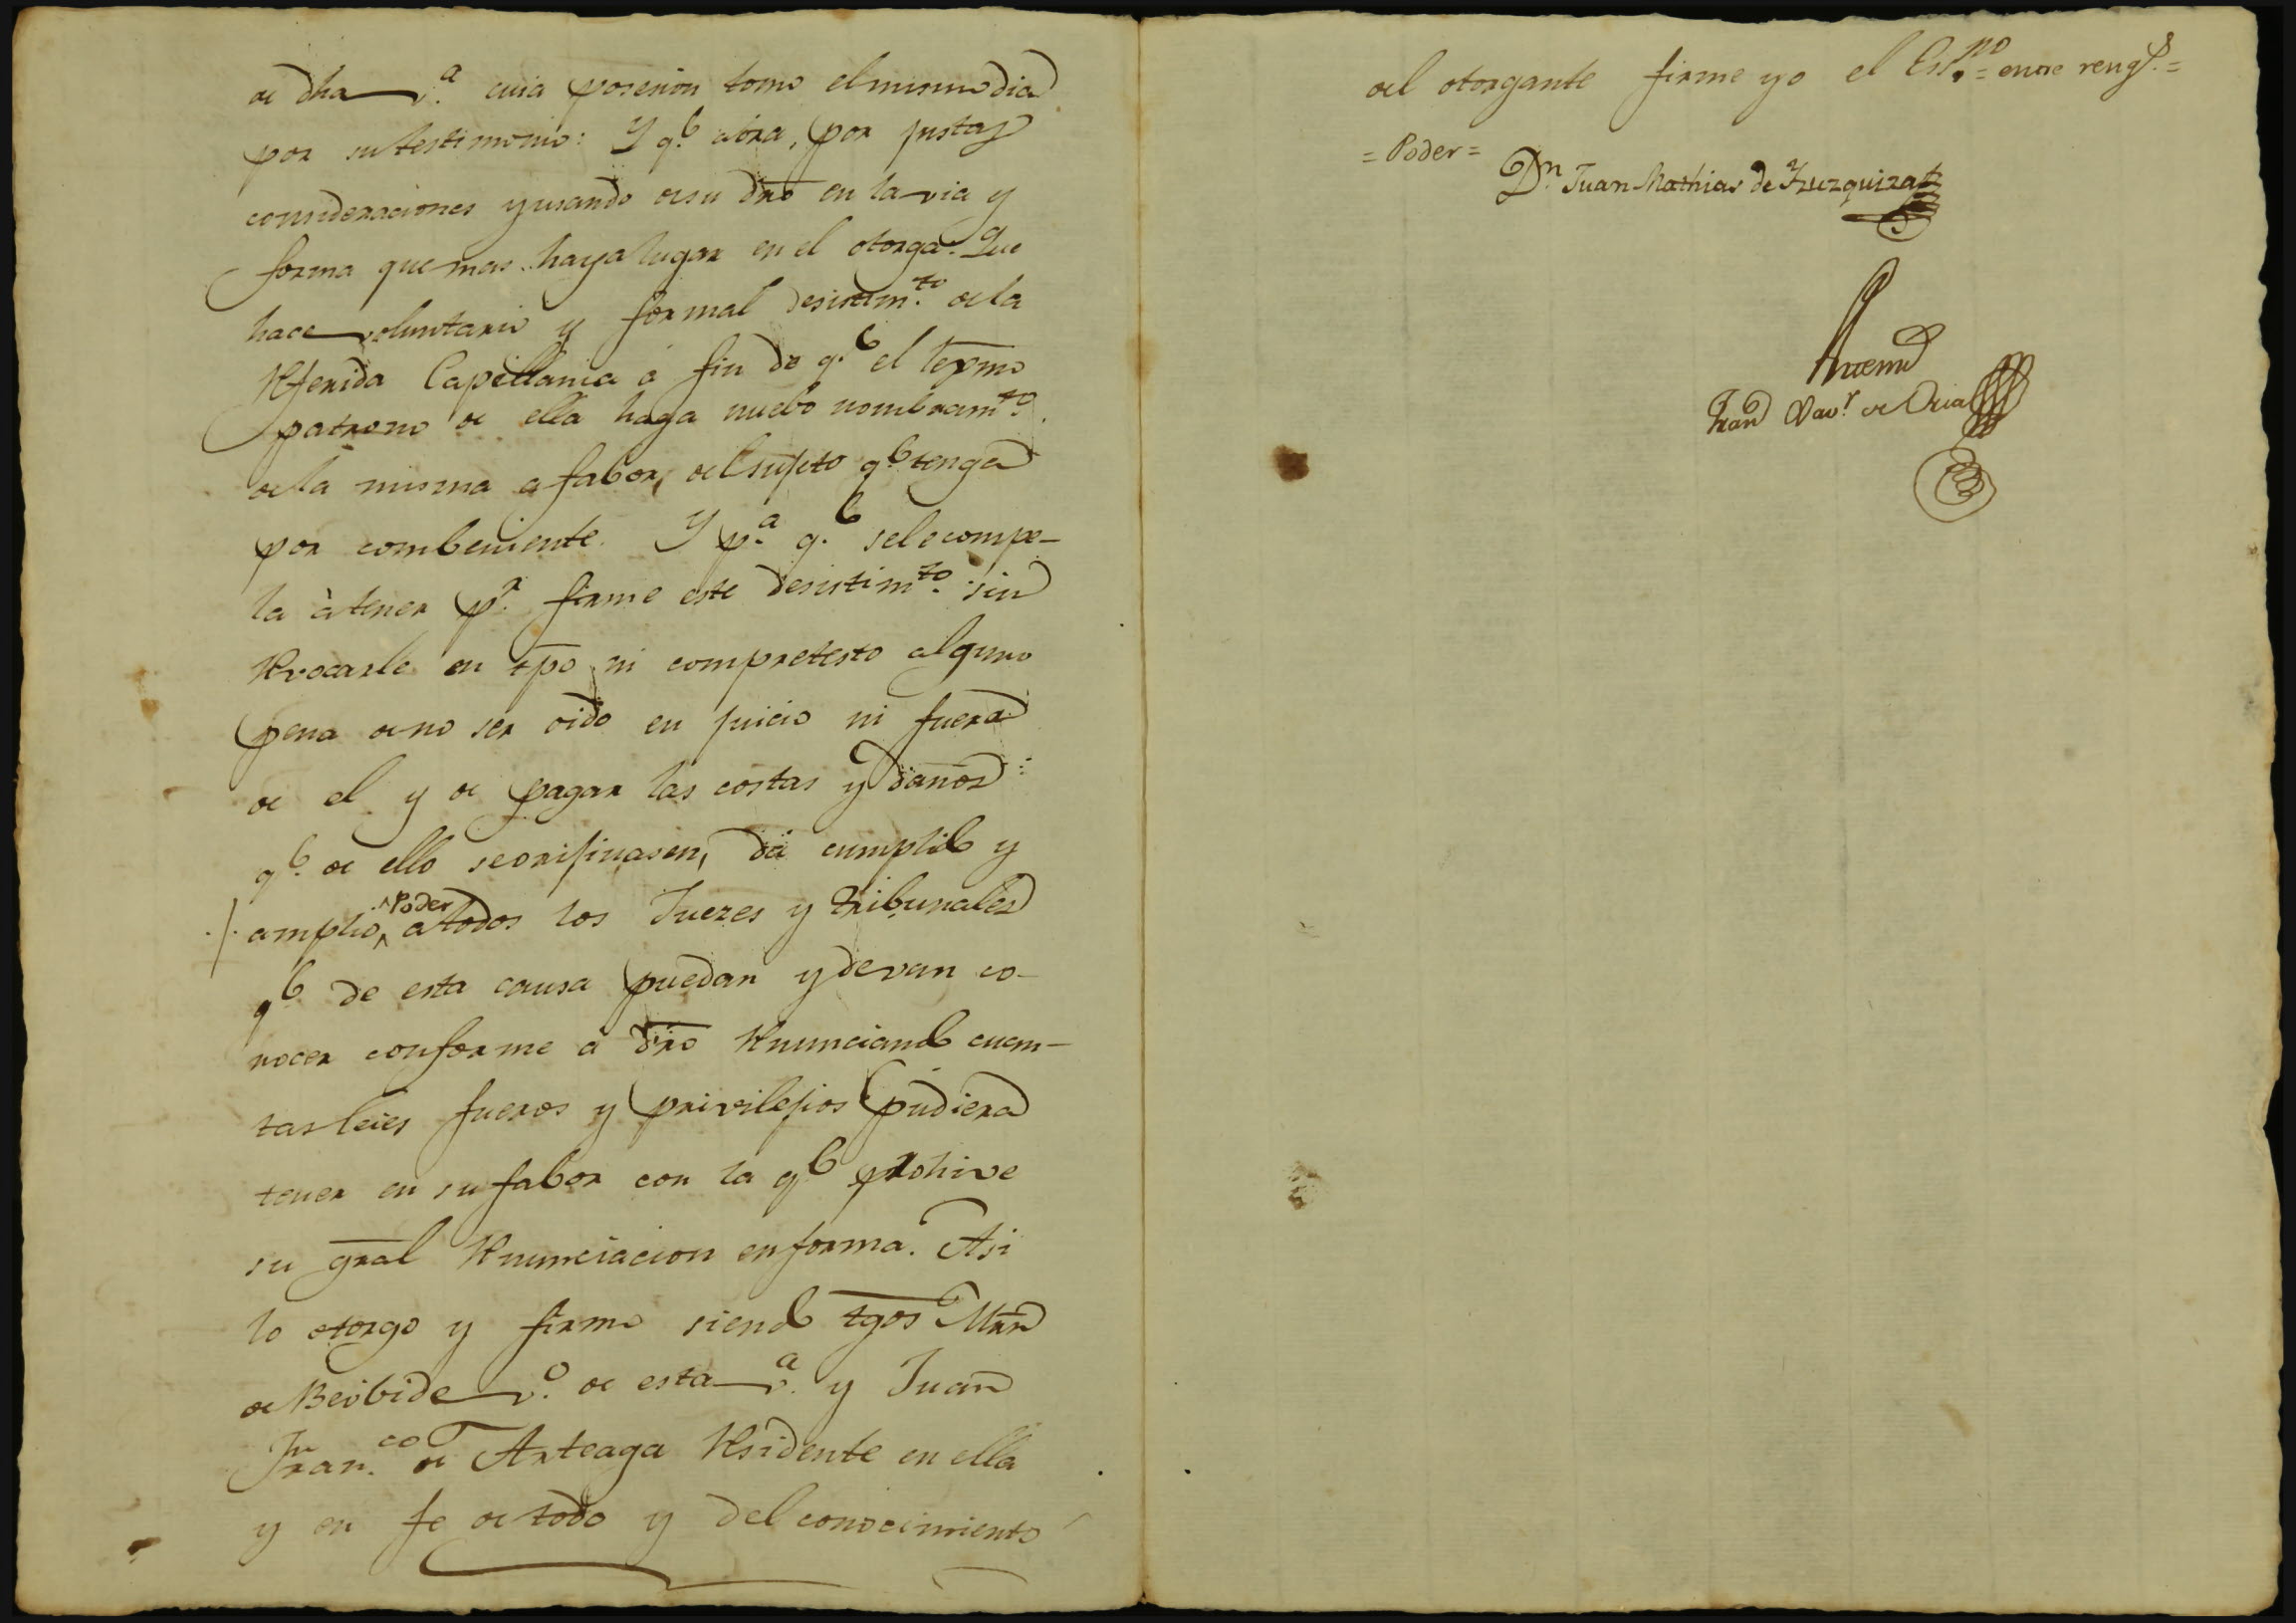 de dha v.ª cuia posesion tomo el mismo dia
por su testimonio: Y q.e aora, por justas
consideraciones y usando de su dro en la via y
forma que mas haya lugar en el otorga: Que
hace voluntario y formal desistim.to de la
Referida Capellania á fin de q.e el lexmo
patrono de ella haga nuebo nombram.to
de la misma a fabor del sujeto q.e tenga
por combeniente. Y p.ª q.e se le compe-
la à tener p.r firme este desistim.to sin
Revocarle en tpo ni compretesto alguno
pena de no ser oido en juicio ni fuera
de el y de pagar las costas y daños
q.e de ello se orijinasen, dá cumplido y
amplio, Poder a todos los Juezes y tribunales
q.e de esta causa puedan y devan co-
nocer conforme á dro Renunciando cuan-
tas leies fueros y privilejios pudiera
tener en su fabor con la q.e prohive
su gral Renunciacion en forma. Asi
lo otorgo y firmo siendo tgos Mrn
de Beobide v.º de esta v.ª y Juan
Fran.co de Arteaga Residente en ella
y en fe de todo y del conocimiento
del otorgante firme yo el Ess.no = entre rengs. =
= Poder =
Dn Juan Mathias de Yruzquiza
Antemi
Juan Xav.r de Oria